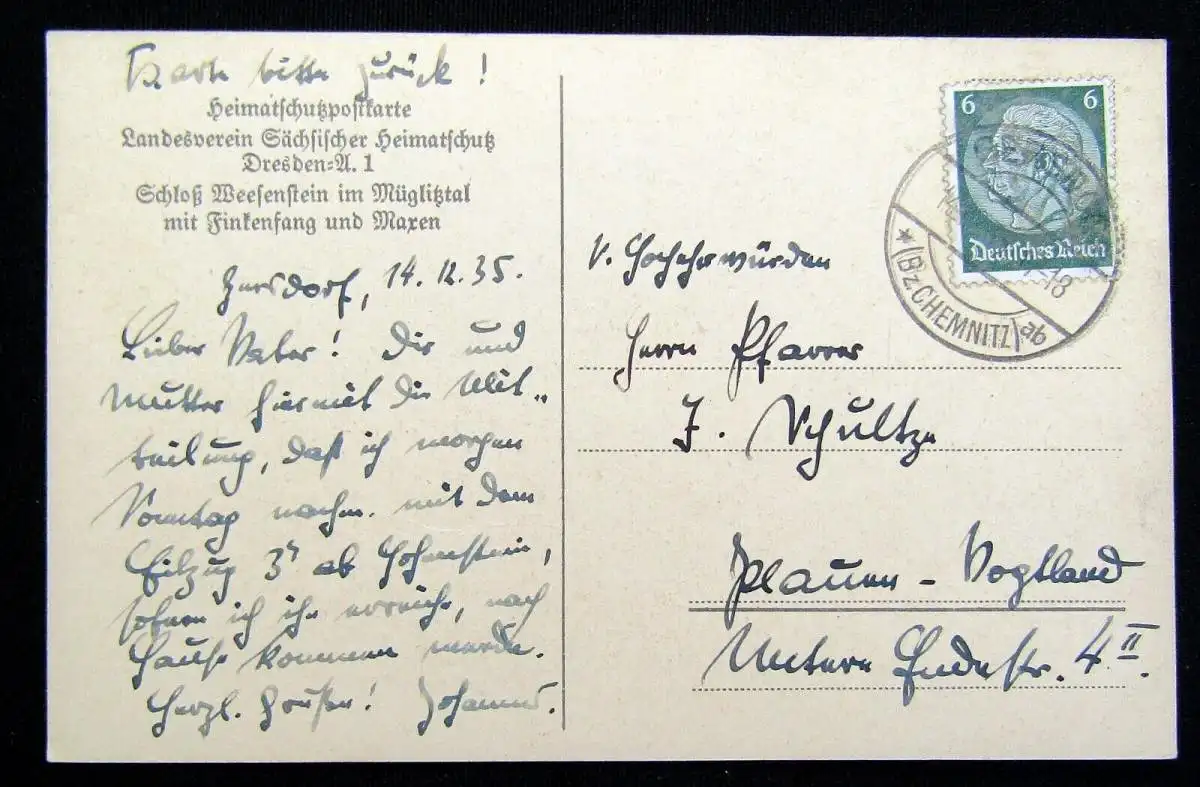 Karte bitte zurück!
Heimatschutzpostkarte
Landesverein Sächsischer Heimatschutz
Dresden-A. 1
Schloß Weesenstein im Müglitztal
mit Finkenfang und Maxen
14.12.35.
Lieber Vater! Dir und
Mutter hiermit die Mit-
teilung, daß ich morgen
Sonntag nachm. mit dem
Eilzug ab Hohenstein,
sofern ich ihn erreiche, nach
Hause kommen werde.
Herzl. Grüße! Johannes.
6 6
Deutsches Reich
(Bz. CHEMNITZ) ab
Hochehrwürden
Herrn Pfarrer
J. Schultze
Plauen - Vogtland
Untere Endestr. 4 II.